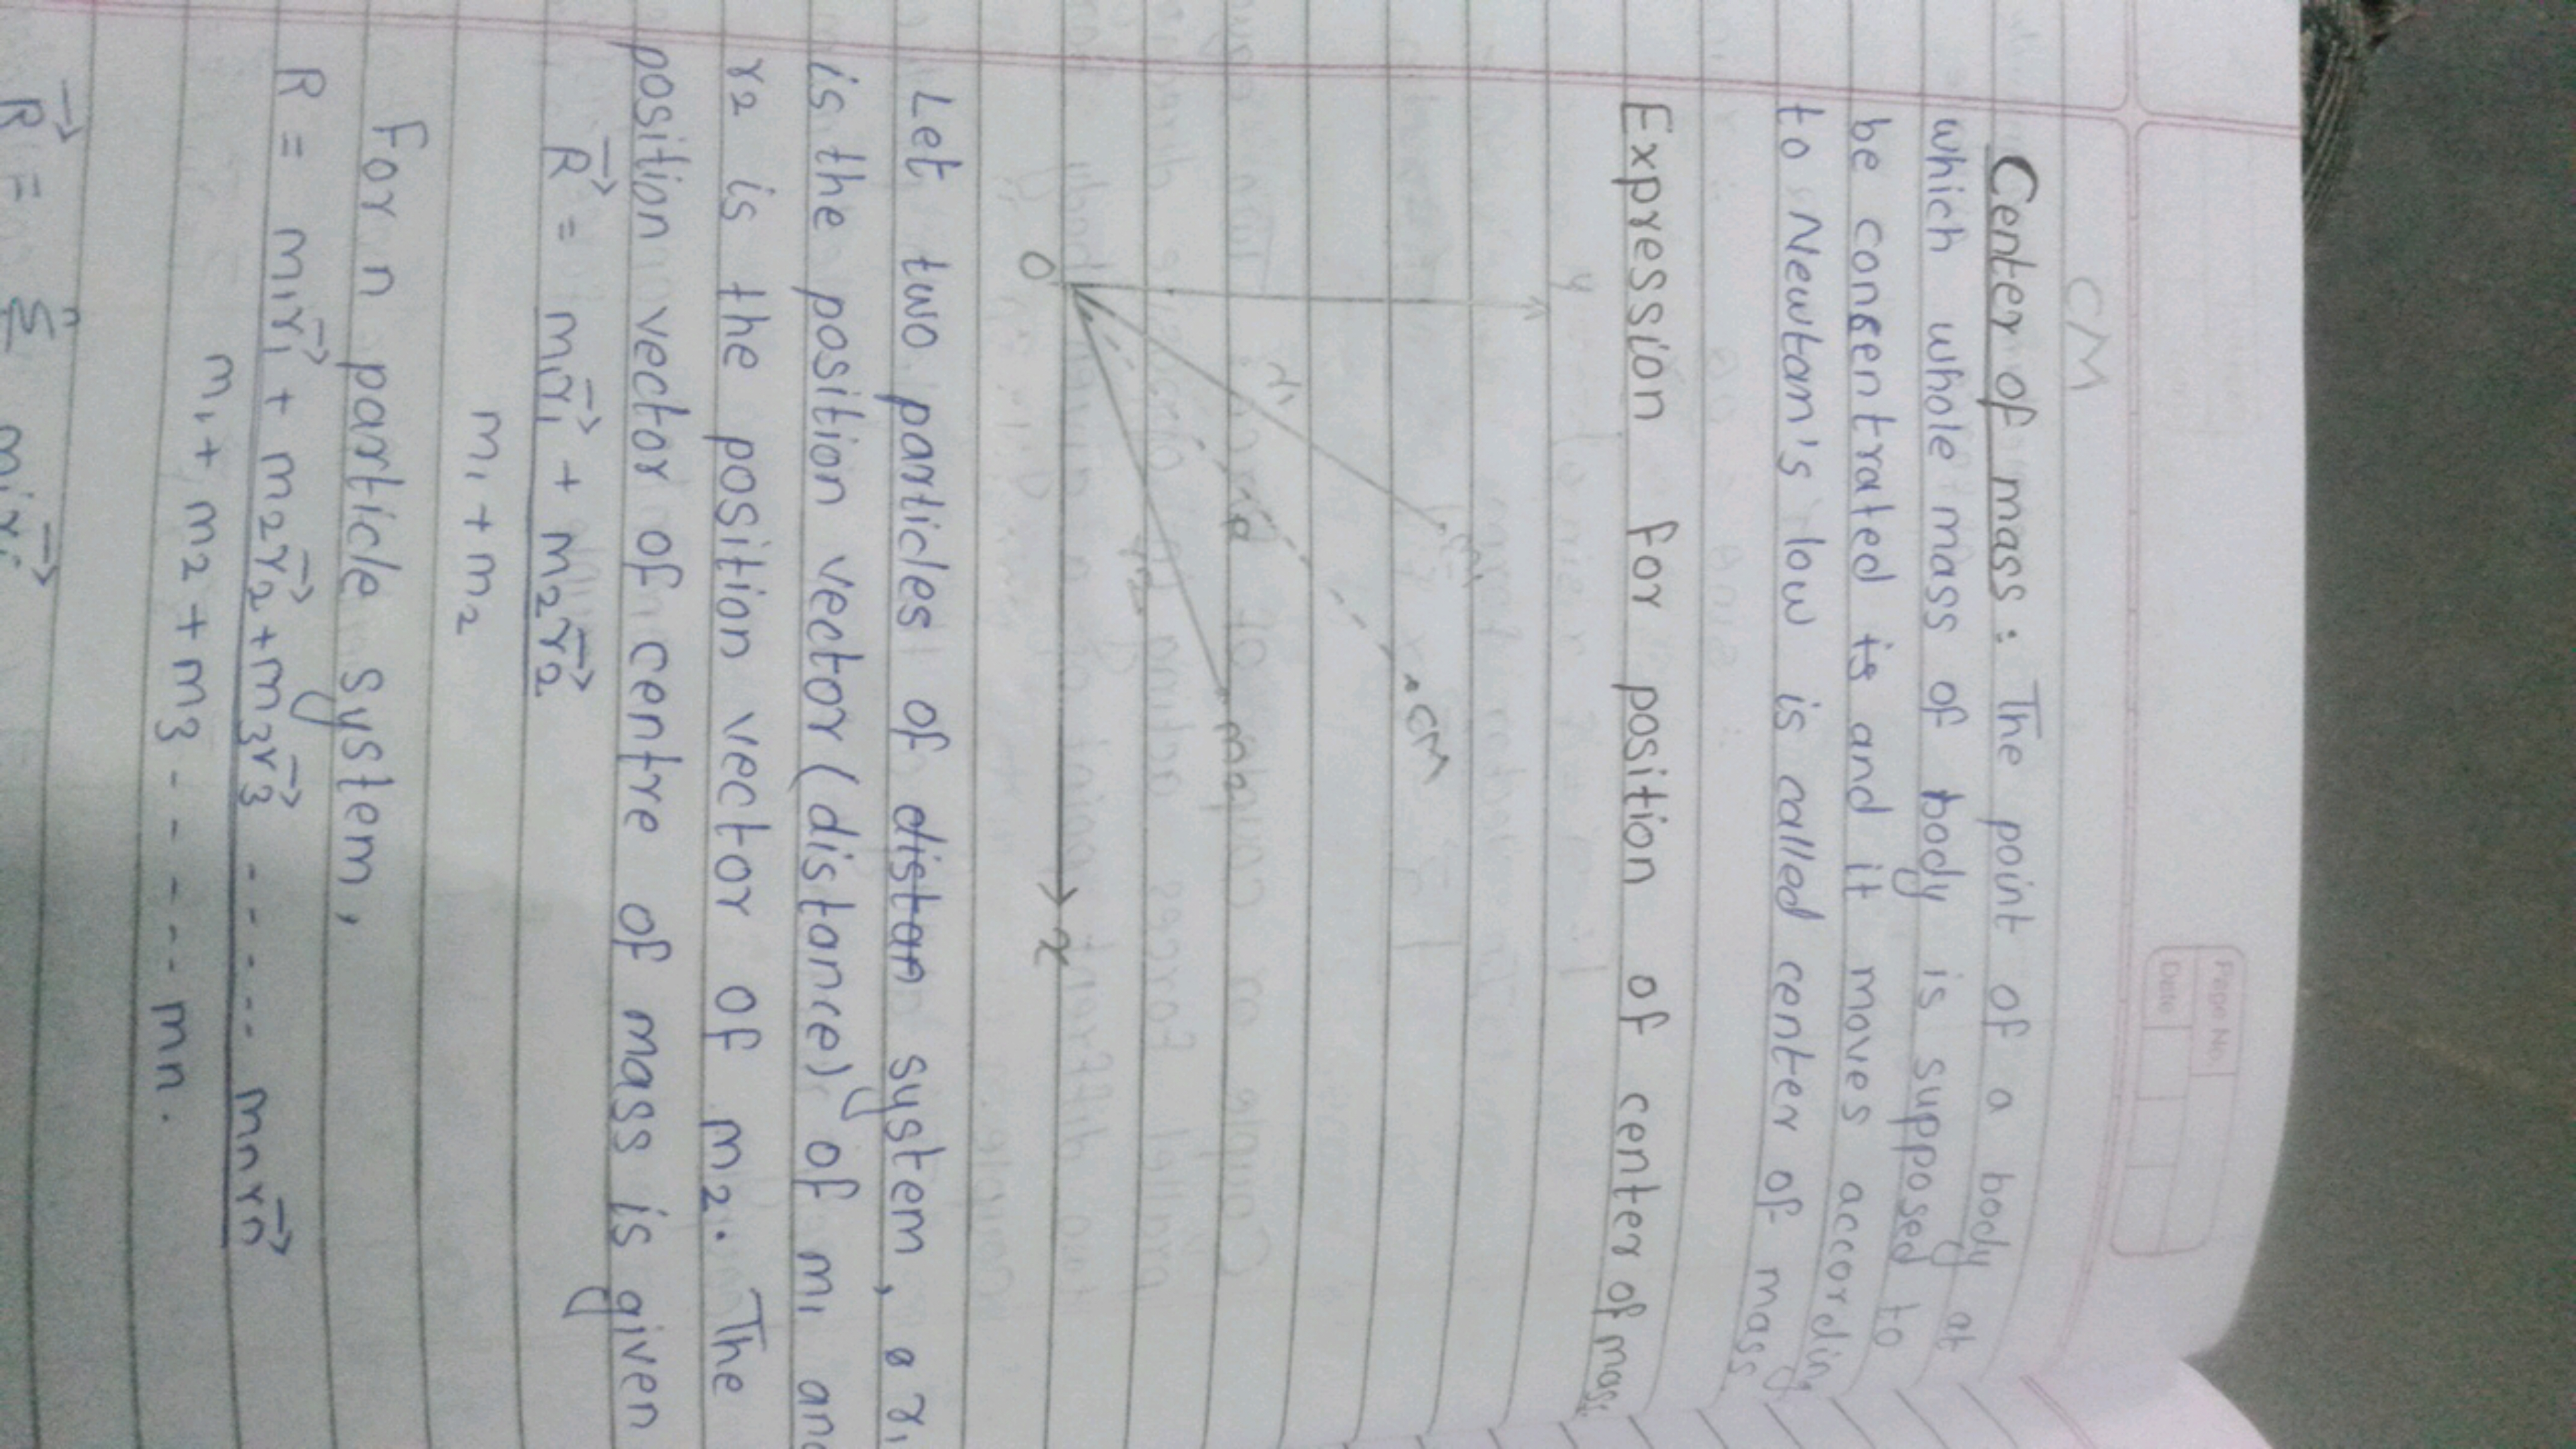 CM
Page No.
Date
Center of mass : The point of a body at
which whole mass of body is supposed to
be consentrated is and it moves accordin
to Newtam's low is called center of mass
Expression for position of center of mass
y
r1
m1
CM
r2
m2
O
x
Let two particles of distan system, r1
is the position vector (distance) of m1 and
r2 is the position vector of m2. The
position vector of centre of mass is given
R⃗ = m1r⃗1 + m2r⃗2
m1 + m2
For n particle system,
R = m1r⃗1 + m2r⃗2 + m3r⃗3 - - - - - - mnr⃗n
m1 + m2 + m3 - - - - - - mn.
R⃗ = n Σ mir⃗i